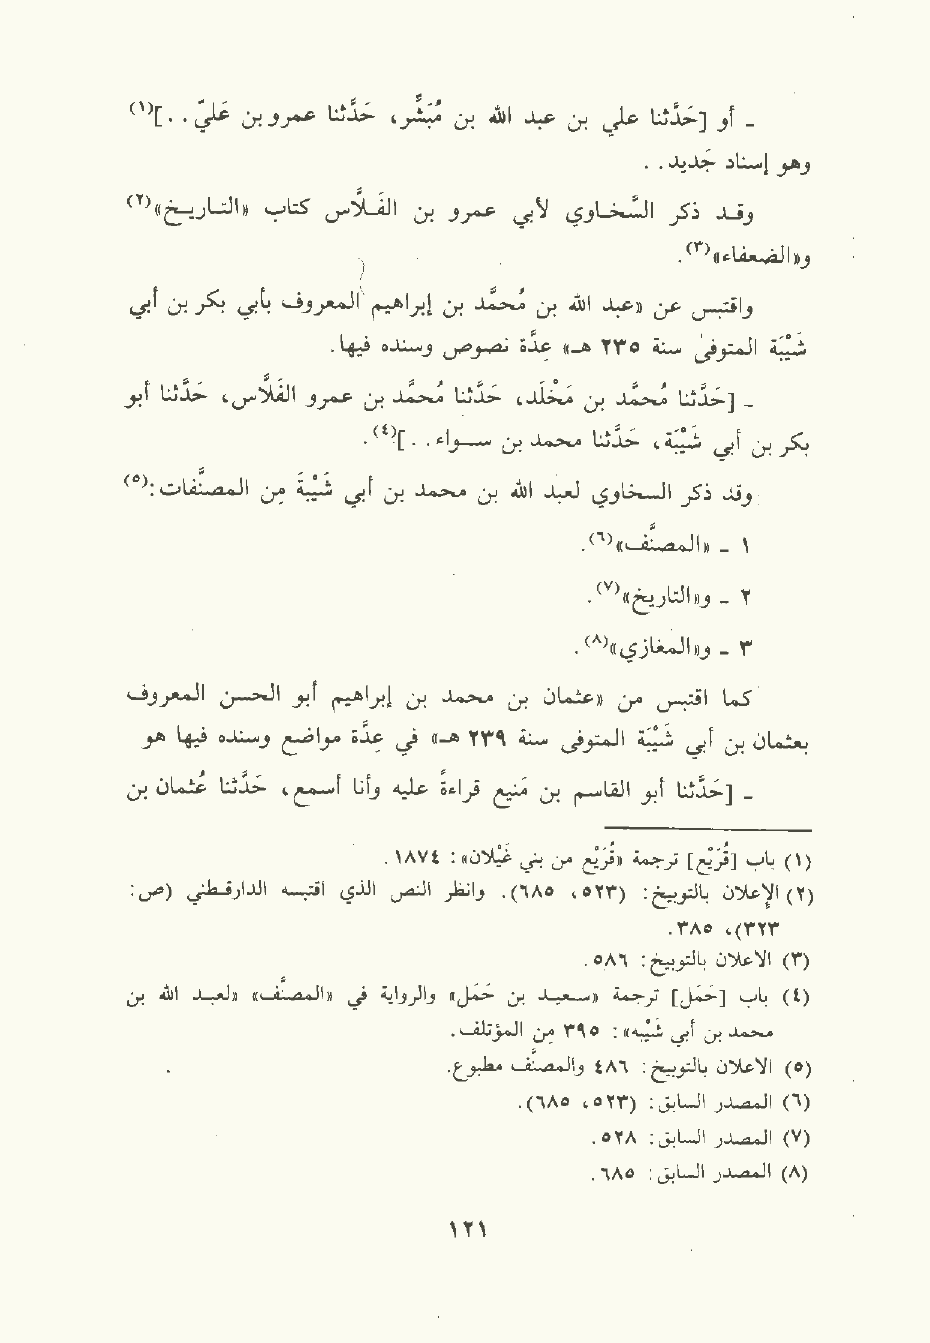 ـ أو [حَدَّثنا علي بن عبد الله بن مُبَشِّر، حَدَّثنا عمرو بن عَليّ . .](١)
وهو إسناد جَديد . .
وقـد ذكر السَّخـاوي لأبي عمـرو بن الفَـلَّاس كتـاب «التـاريـخ»(٢)
و«الضعفاء»(٣).
واقتبس عن «عبد الله بن مُحمَّد بن إبراهيم المعروف بأبي بكر بن أبي
شَيْبَة المتوفى سنة ٢٣٥ هـ» عدَّة نصوص وسنده فيها.
ـ [حَدَّثنا مُحمَّد بن مَخْلَد، حَدَّثنا مُحمَّد بن عمرو الفَلَّاس، حَدَّثنا أبو
بكر بن أبي شَيْبَة، حَدَّثنا محمد بن سـواء . .](٤).
وقد ذكر السخاوي لعبد الله بن محمد بن أبي شَيْبَة مِن المصنَّفات:(٥)
١ ـ «المصنَّف»(٦).
٢ ـ و«التاريخ»(٧).
٣ ـ و«المغازي»(٨).
كما اقتبس من «عثمان بن محمد بن إبراهيم أبو الحسن المعروف
بعثمان بن أبي شَيْبَة المتوفى سنة ٢٣٩ هـ» في عدَّة مواضع وسنده فيها هو
ـ [حَدَّثنا أبو القاسم بن مَنيع قراءةً عليه وأنا أسمع، حَدَّثنا عُثمان بن
(١) باب [قُرَيْع] ترجمة «قُرَيْع من بني غَيْلان»: ١٨٧٤.
(٢) الإعلان بالتوبيخ: (٥٢٣، ٦٨٥). وانظر النص الذي اقتبسه الدارقـطني (ص:
٣٢٣)، ٣٨٥.
(٣) الاعلان بالتوبيخ: ٥٨٦.
(٤) باب [حَمَل] ترجمة «سـعيـد بن حَمَل» والرواية في «المصنَّـف» «لعبـد الله بن
محمد بن أبي شَيْبه»: ٣٩٥ مِن المؤتلف.
(٥) الاعلان بالتوبيخ: ٤٨٦ والمصنَّف مطبوع.
(٦) المصدر السابق: (٥٢٣، ٦٨٥).
(٧) المصدر السابق: ٥٢٨.
(٨) المصدر السابق: ٦٨٥.
١٢١